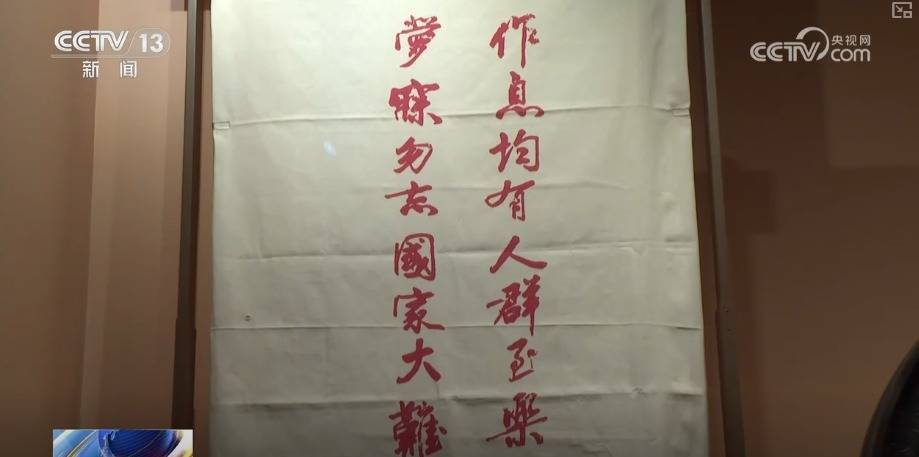 CCTV 13
新闻
CCTV 央视网
com
作息均有人群至樂
夢寐勿忘國家大難